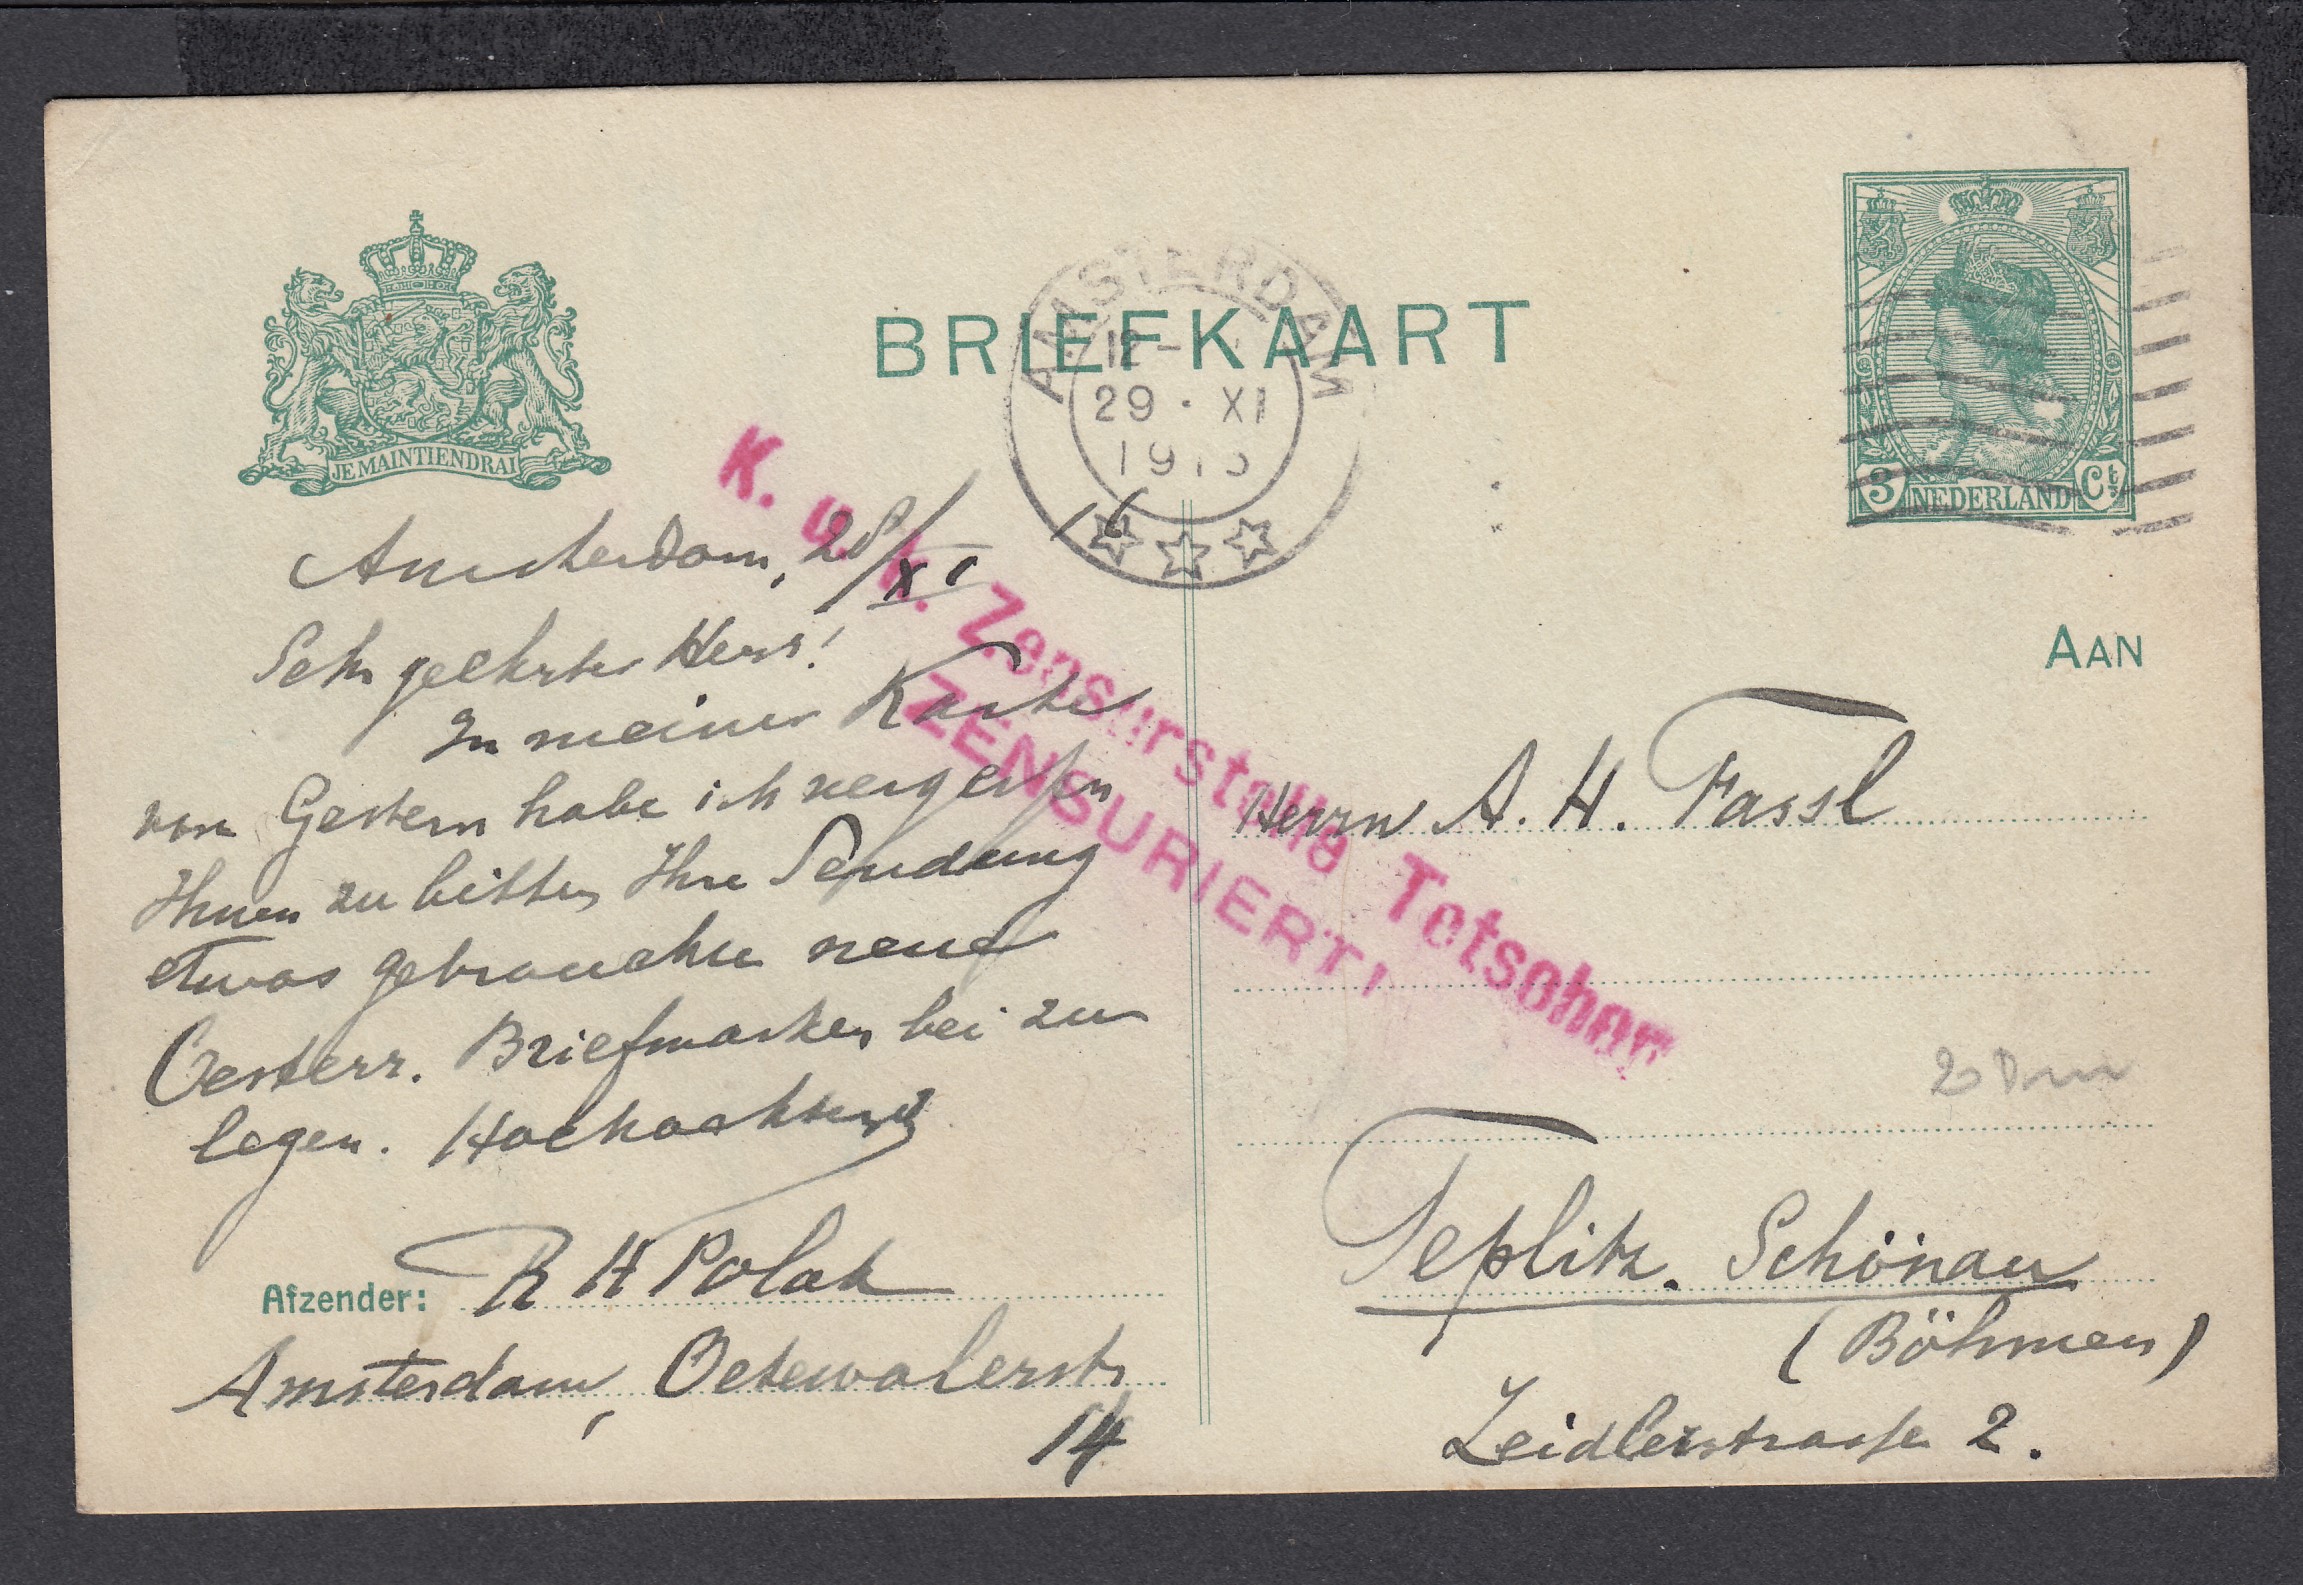 JE MAINTIENDRAI
BRIEFKAART
AMSTERDAM
12-
29 · XI
191
3 NEDERLAND Ct
K. u. k. Zensurstelle Tetschen
ZENSURIERT!
Amsterdam, 28/XI 16
Sehr geehrter Herr!
In meiner Karte
von Gestern habe ich vergessen
Ihnen zu bitten Ihre Sendung
etwas gebrauchte neue
Oesterr. Briefmarken bei zu
legen. Hochachtend
Afzender: R H Polak
Amsterdam, Oetewalerstr
14
AAN
Herrn A. H. Fassl
Teplitz. Schönau
(Böhmen)
Zeidlerstrasse 2.